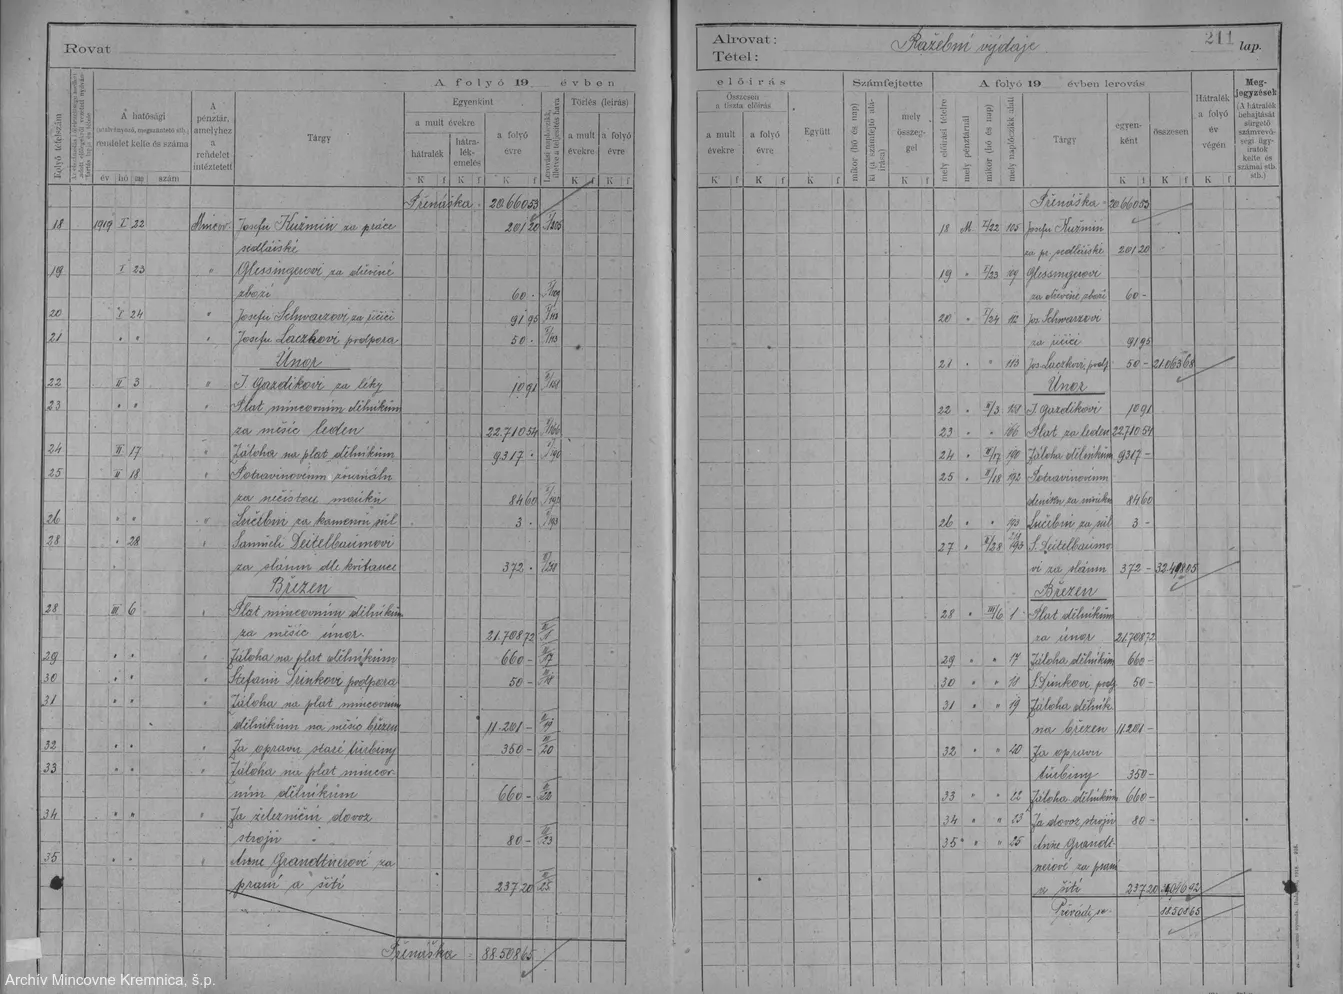 Rovat
A folyó 19 évben
Folyó tételszám
A hatósági
(utalványozó, megosztó stb.)
rendelet kelte és száma
év hó nap szám
A
pénztár,
amelyhez
a
rendelet
intéztetett
Tárgy
Egyenkint
a mult évekre
hátralék
hátra-
lék-
emelés
a folyó
évre
Törlés (leírás)
a mult
évekre
a folyó
évre
K f K f K f K f K f
Přenáška 20660 53
18 1919 I 22 Mincov. Josefu Kuźmin za práce
sedlářské 201 20 I/105
19 I 23 " Glessingerovi za dřevěné
zboží 60 - I/109
20 I 24 " Josefu Schwarzovi za účīčī 91 95 I/112
21 " " " Josefu Laczkovi podpora 50 - I/113
Únor
22 II 3 " J. Gazdíkovi za léky 10 91 II/151
23 " " Plat mincovním dělníkům
za měsíc leden 22.710 54 II/166
24 II 17 " Záloha na plat dělníkům 9317 - II/190
25 II 18 " Potravinovému
za nečistou mouku 84 60 II/192
26 " " " Lučební za kamennú sůl 3 - II/193
28 " 28 " Samueli Deitelbaumovi
za slámu dle kvitance 372 -
Březen
28 III 6 " Plat mincovním dělníkům
za měsíc únor 21.708 72 III/1
29 " " " Záloha na plat dělníkům 660 - III/17
30 " " " Štefanu Šrinkovi podpora 50 - III/18
31 " " " Záloha na plat mincovním
dělníkům na měsíc březen 11.201 - III/19
32 " " " Za opravu staré turbiny 350 - III/20
33 " " " Záloha na plat mincov-
ním dělníkům 660 - III/22
34 " " Za železniční dovoz
strojů 80 - III/23
35 " " " Anne Grandtnerové za
praní a šití 237 20 III/25
Přenáška 88.508 65
Alrovat:
Tétel:
Ražební výdaje
211 lap.
előírás
Összesen
a tiszta előírás
a mult
évekre
a folyó
évre
Együtt
Számfejtette
mikor (hó és nap)
ki (a számfejtő alá-
írása)
mely
összeg-
gel
A folyó 19 évben lerovás
mely előírási tételre
mely pénztárnál
mikor (hó és nap)
mely naplócikk alatt
Tárgy
egyen-
ként
összesen
Hátralék
a folyó
év
végén
Meg-
jegyzések
(A hátralék
behajtását
sürgető
számrevő-
ségi ügy-
iratok
kelte és
számai stb.
stb.)
K f K f K f K f K f K f K f
Přenáška - 20660 53
18 M. I/22 105 Josefu Kuźmin
za pr. sedlářské 201 20
19 " I/23 109 Glessingerovi
za dřevěné zboží 60 -
20 " I/24 112 Jos. Schwarzovi
za účīčī 91 95
21 " " 113 Jos. Laczkovi podp. 50 - 21063 68
Únor
22 " II/3 151 J. Gazdíkovi 10 91
23 " " 166 Plat za leden 22710 54
24 " II/17 190 Záloha dělníkům 9317 -
25 " II/18 192 Potravinovému
za mouku 84 60
26 " " 193 Lučební za sůl 3 -
27 " II/28 S. Deitelbaumo-
vi za slámu 372 - 32498 05
Březen
28 " III/6 1 Plat dělníkům
za únor 21.708 72
29 " " 17 Záloha dělníkům 660 -
30 " " 18 Š. Šrinkovi podp. 50 -
31 " " 19 Záloha dělník.
na březen 11.201 -
32 " " 20 Za opravu
turbiny 350 -
33 " " 22 Záloha dělníkům 660 -
34 " " 23 Za dovoz strojů 80 -
35 " " 25 Anne Grandt-
nerové za praní
a šití 237 20
88508 65
Archív Mincovne Kremnica, š.p.